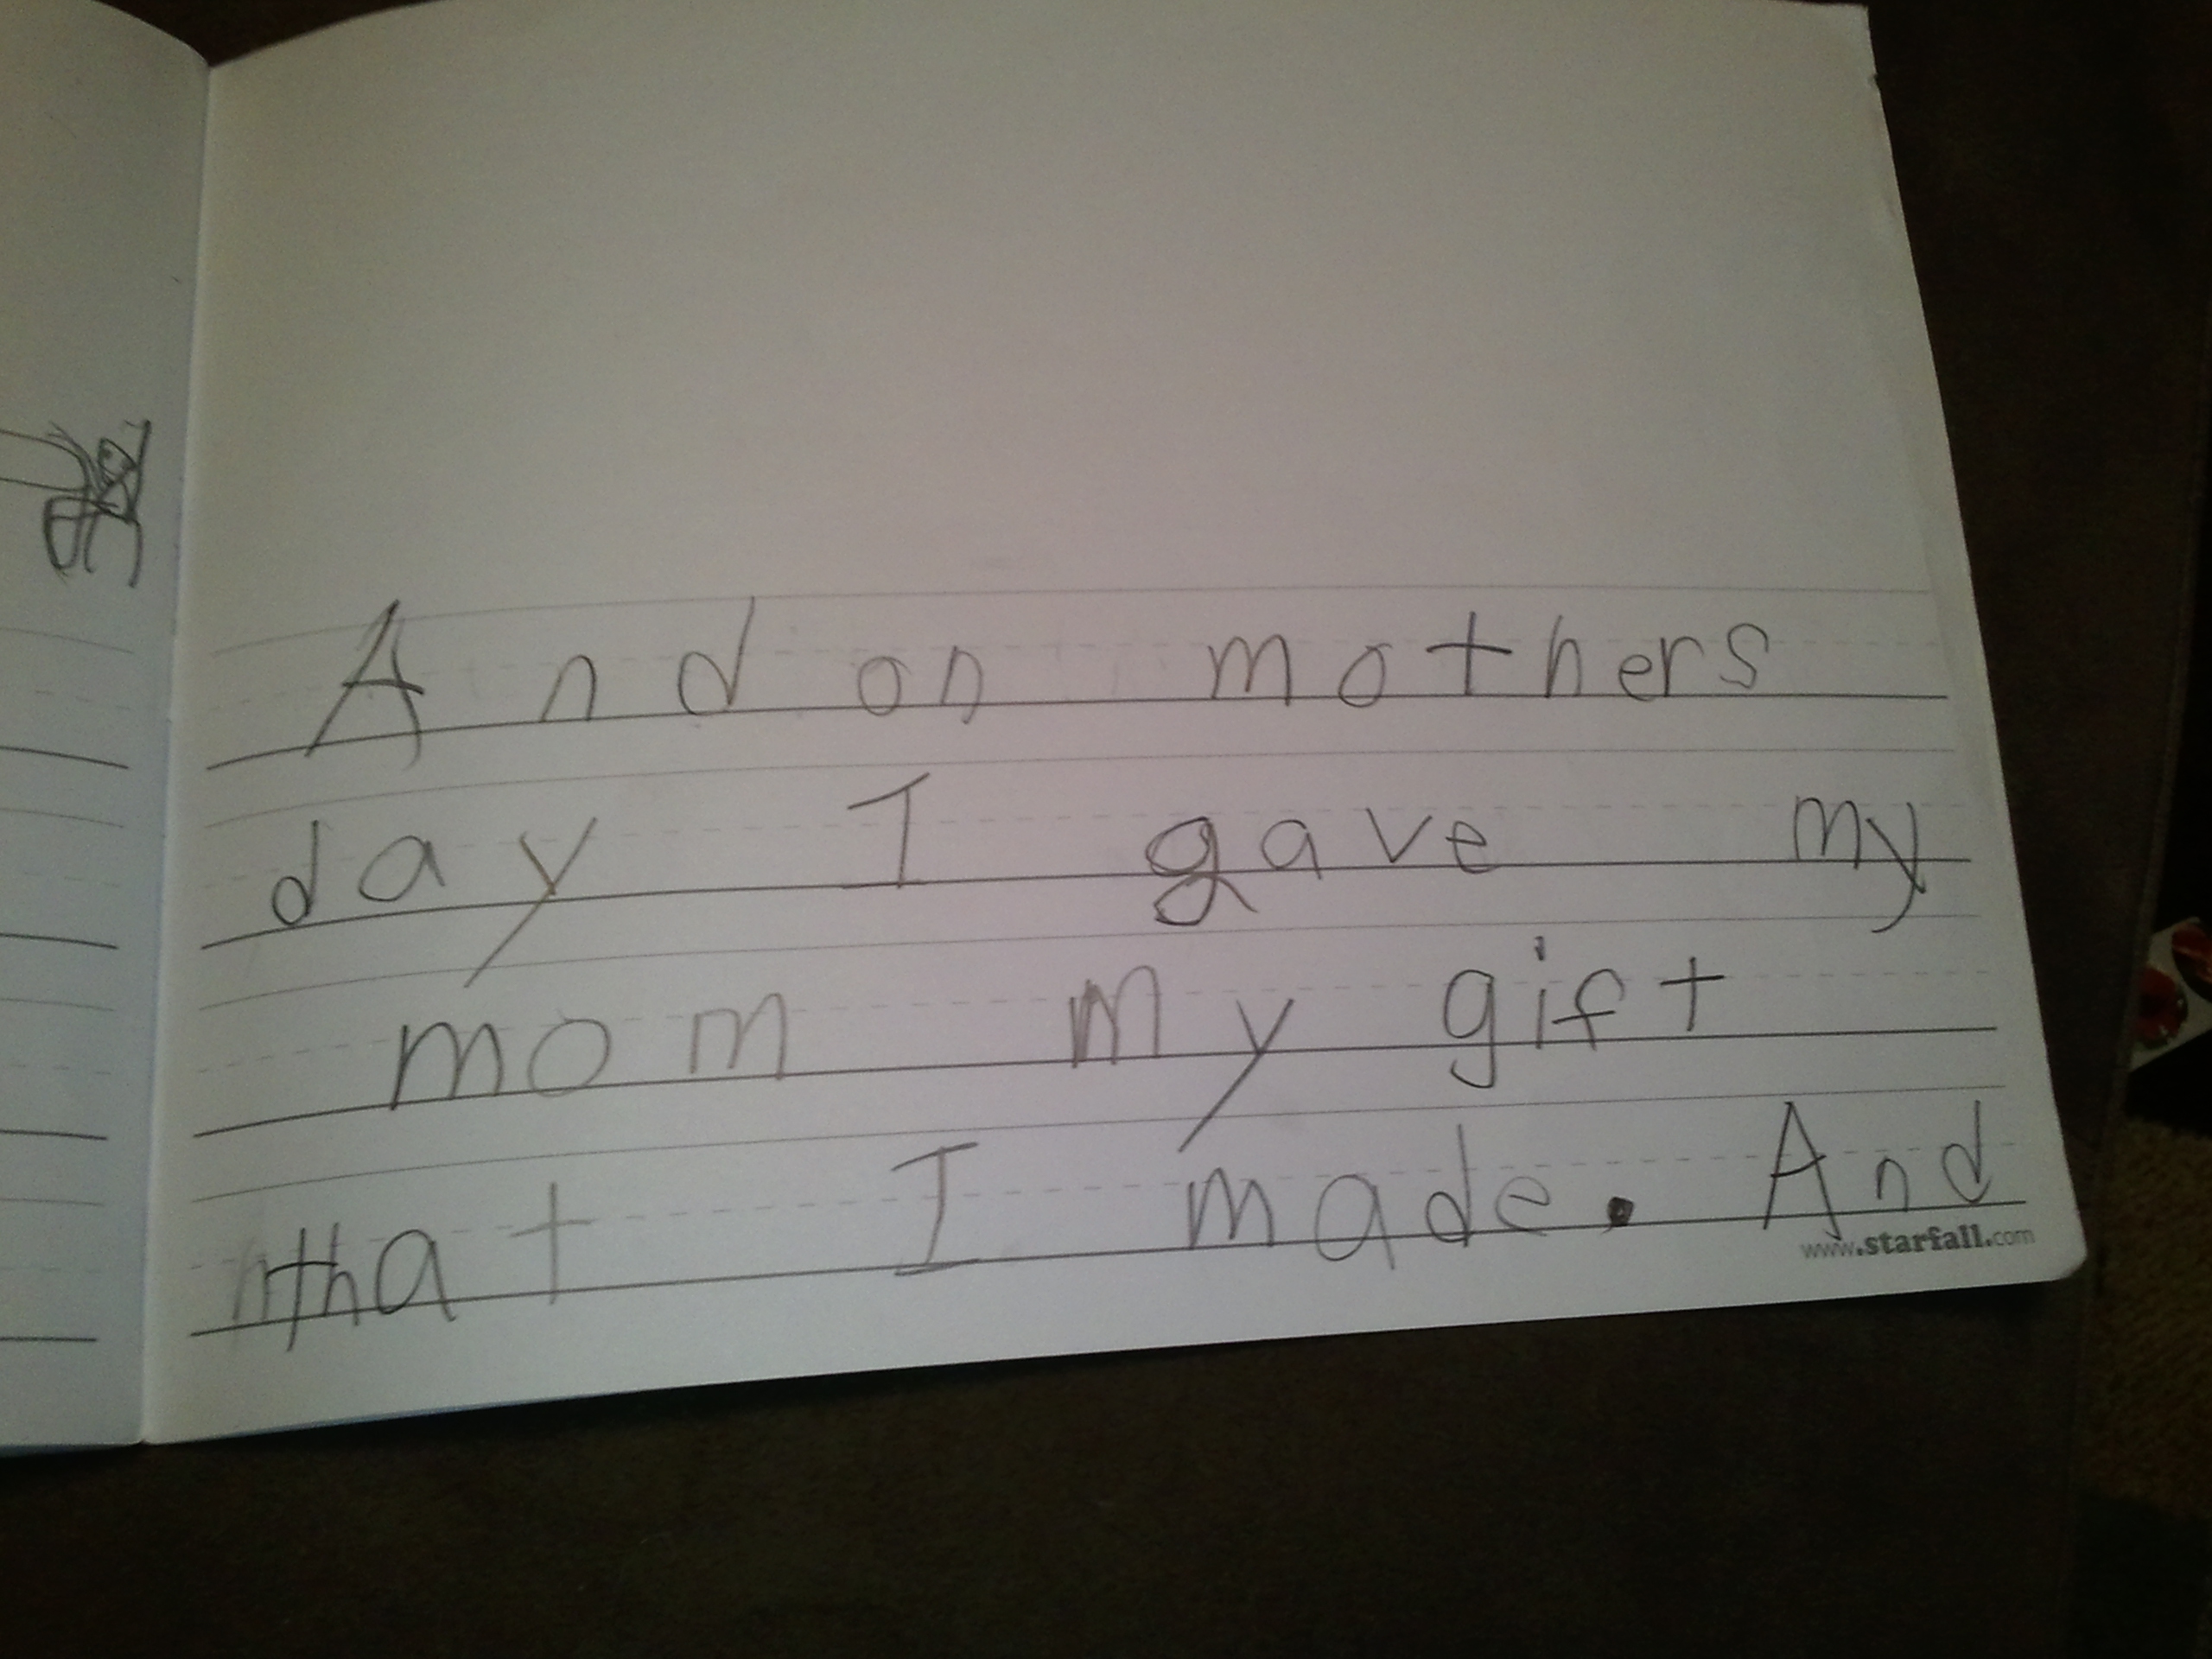 And on mothers
day I gave my
mom my gift
that I made. And
www.starfall.com